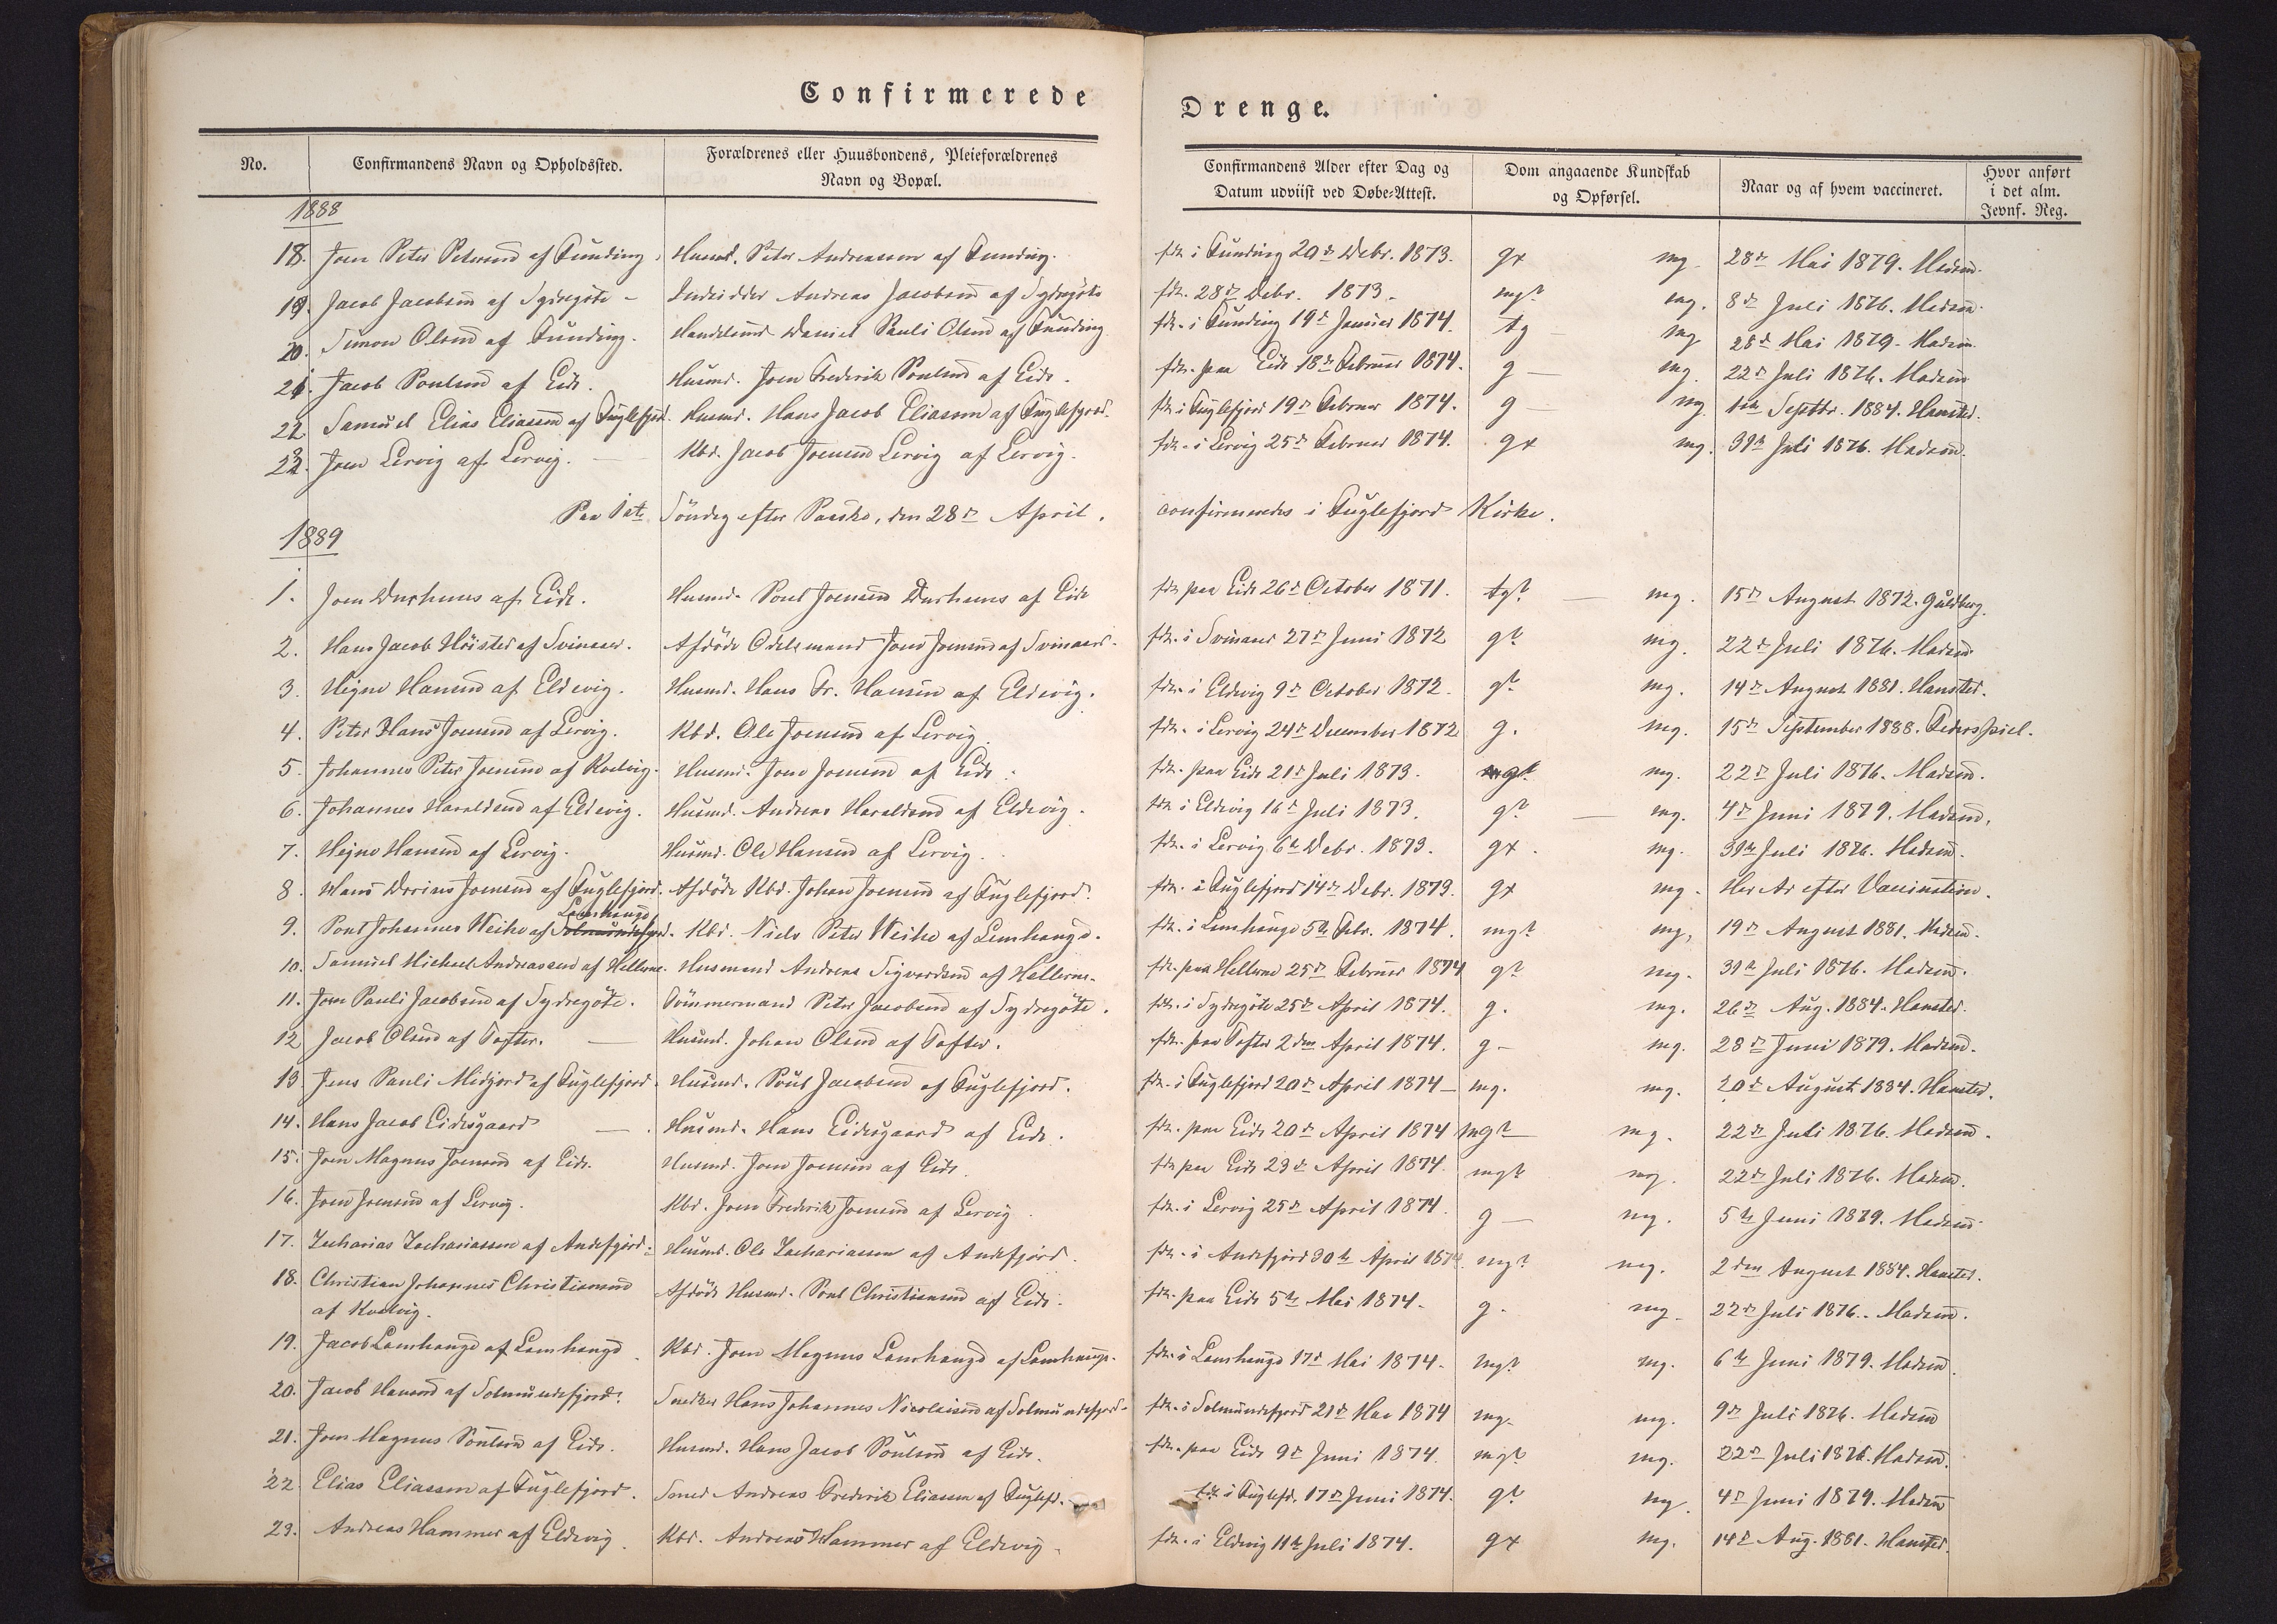 Confirmerede
Drenge.
No.
Confirmandens Navn og Opholdssted.
Forældrenes eller Huusbondens, Pleieforældrenes
Navn og Bopæl.
Confirmandens Alder efter Dag og
Datum udviist ved Døbe-Attest.
Dom angaaende Kundskab
og Opførsel.
Naar og af hvem vaccineret.
Hvor anført
i det alm.
Jevnf. Reg.
1888
18. Joen Peter Petersend af Funding. Husmd. Peter Andreassen af Funding. fdt. i Funding 20de Debr. 1873. gx mg. 28de Mai 1879. Madsend.
19. Jacob Jacobsend af Sydregöte - Andreas Jacobsend af Sydregöte fdt. 28de Debr. 1873. mg? mg. 8de Juli 1876. Madsend.
20. Simon Olsend af Funding. Daniel Pauli Olsend af Funding fdt. i Funding 19d Januar 1874. tg mg 28d Mai 1879. Madsend
21. Jacob Poulsend af Eide. Husmd. Joen Frederik Poulsend af Eide. fdt. paa Eide 18de Februar 1874. g mg. 22d Juli 1876. Madsend
22. Samuel Elias Eliassend af Fuglefjord. Husmd. Hans Jacob Eliassen af Fuglefjord. fdt. i Fuglefjord 19de Februar 1874. g mg. 1ste Septbr. 1884. Hansted.
23. Joen Lervig af Lervig. Kbd. Jacob Joensend Lervig af Lervig. fdt. i Lervig 25de Februar 1874. gx mg. 31te Juli 1876. Madsend.
Paa 1ste Söndag efter Paaske, den 28de April. confirmeredes i Fuglefjord Kirke.
1889
1. Joen Durhuus af Eide. Husmd. Poul Joensend Durhuus af Eide fdt. paa Eide 26d October 1871. tg? mg. 15de August 1872. Guldberg.
2. Hans Jacob Höisted af Svinaaer. Afdöde Odelsmand Joen Joensend af Svinaaer. fdt. i Svinaaer 27de Juni 1872 g? mg. 22d Juli 1876. Madsend
3. Högne Hansend af Eldevig. Husmd. Hans Fr. Hansen af Eldevig. fdt. i Eldevig 9de October 1872. g? mg. 14de August 1881. Hansted.
4. Peter Hans Joensend af Lervig. Kbd. Ole Joensend af Lervig. fdt. i Lervig 24de December 1872 g. mg. 15de September 1888. Federspiel.
5. Johannes Peter Joensend af Kodvig. Husmd. Joen Joensend af Eide. fdt. paa Eide 21d Juli 1873. mg? mg. 22d Juli 1876. Madsend.
6. Johannes Haraldsend af Eldevig. Husmd. Andreas Haraldsend af Eldevig. fdt. i Eldevig 16d Juli 1873. g? mg. 4de Juni 1879. Madsend.
7. Hejne Hansend af Lervig. Husmd. Ole Hansend af Lervig. fdt. i Lervig 6te Debr. 1873. gx mg. 31te Juli 1876. Madsend.
8. Hans Joensend af Fuglefjord. Afdöde Kbd. Johan Joensend af Fuglefjord. fdt. i Fuglefjord 14de Debr. 1873. gx mg. Har Ar efter Vaccination.
9. Poul Johannes Weihe af Solmundefjord Lamhauge. Kbd. Niels Peter Weihe af Lamhauge. fdt. i Lamhauge 5te Febr. 1874. mg? mg. 19de August 1881. Madsend.
10. Samuel Michael Andreassend af Hellerne. Husmand Andreas Sigvardsend af Hellerne. fdt. paa Hellerne 25de Februar 1874 g? mg. 31te Juli 1876. Madsend.
11. Joen Pauli Jacobsend af Sydregöte. Tömmermand Peter Jacobsend af Sydregöte. fdt. i Sydregöte 25de April 1874. g. mg. 26de Aug. 1884. Hansted.
12 Jacob Olsend af Tofter. Husmd. Johan Olsend af Tofter. fdt. paa Tofter 2den April 1874. g mg. 28de Juni 1879. Madsend.
13 Jens Pauli Midjord af Fuglefjord. Husmd. Poul Jacobsend af Fuglefjord. fdt. i Fuglefjord 20de April 1874 mg. mg. 20d August 1884. Hansted.
14. Hans Jacob Eidesgaard Husmd. Hans Eidesgaard af Eide. fdt. paa Eide 20de April 1874 mg? mg. 22de Juli 1876. Madsend.
15. Joen Magnus Joensend af Eide. Husmd. Joen Joensend af Eide. fdt. paa Eide 23d April 1874. mg? mg. 22de Juli 1876. Madsend.
16. Joen Joensend af Lervig. Kbd. Joen Frederik Joensend af Lervig. fdt. i Lervig 25de April 1874. g mg. 5te Juni 1879. Madsend.
17. Zacharias Zachariassen af Andefjord. Husmd. Ole Zachariassen af Andefjord. fdt. i Andefjord 30te April 1874 mg? mg. 2den August 1884. Hansted.
18. Christian Johannes Christiansend
af Kodvig. Afdöde Husmd. Poul Christiansend af Eide. fdt. paa Eide 5te Mai 1874. g. mg. 22de Juli 1876. Madsend.
19. Jacob Lamhauge af Lamhauge. Kbd. Joen Magnus Lamhauge af Lamhauge. fdt. i Lamhauge 17d Mai 1874. mg? mg. 6te Juni 1879. Madsend.
20. Jacob Hansend af Solmundefjord. Snedker Hans Johannes Nicolaisend af Solmundefjord. fdt. i Solmundefjord 21d Mai 1874 mg. mg. 9de Juli 1876. Madsend
21. Joen Magnus Poulsend af Eide. Husmd. Hans Jacob Poulsend af Eide. fdt. paa Eide 9d Juni 1874. mg? mg. 22de Juli 1876. Madsend.
22. Elias Eliassen af Fuglefjord. Smed Andreas Frederik Eliassen af Fuglefd. fdt. i Fuglefd. 17de Juni 1874. g? mg. 4de Juni 1879. Madsend
23. Andreas Hammer af Eldevig. Kbd. Andreas Hammer af Eldevig. fdt. i Eldevig 11te Juli 1874. gx mg. 14de Aug. 1881. Hansted.